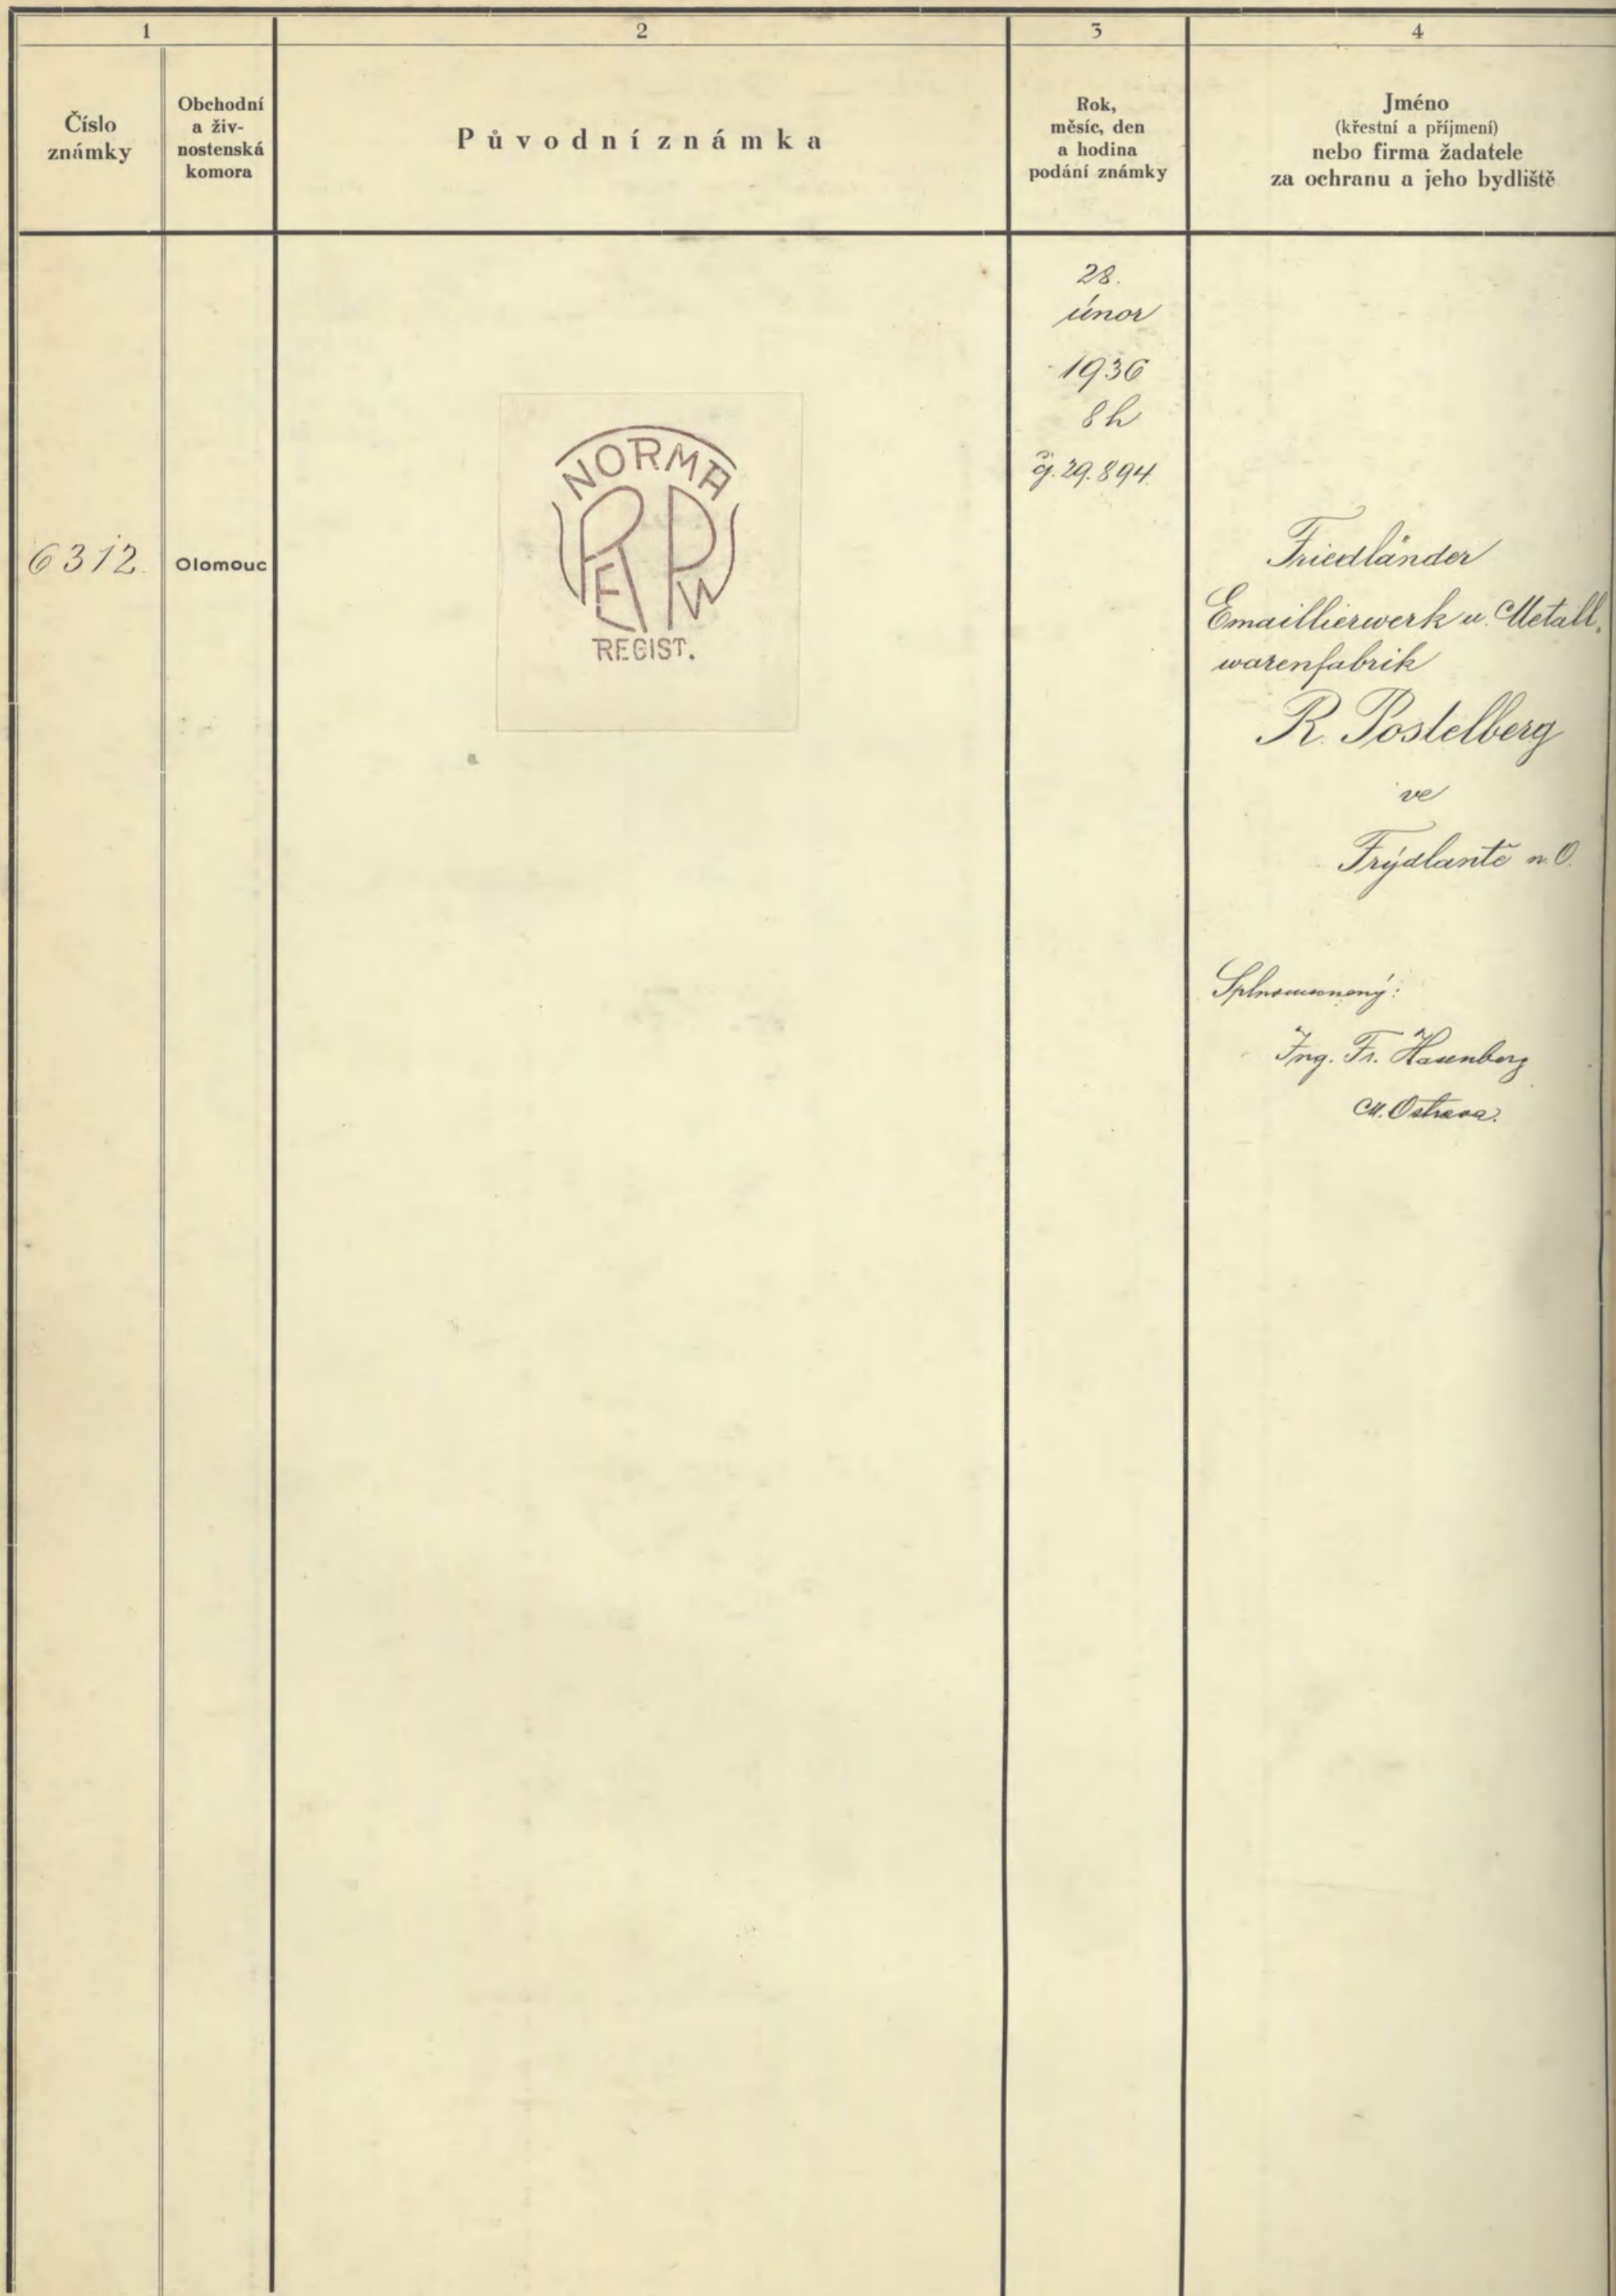 1
2
3
4
Číslo
známky
Obchodní
a živ-
nostenská
komora
Původní známka
Rok,
měsíc, den
a hodina
podání známky
Jméno
(křestní a příjmení)
nebo firma žadatele
za ochranu a jeho bydliště
28.
únor
1936
8 h
č.j. 29.894.
NORMA
REGIST.
6312.
Olomouc
Friedländer
Emaillierwerk u. Metall-
warenfabrik
R. Postelberg
ve
Frýdlantě n. O.
Splnomocněný:
Ing. Fr.
M. Ostrava.